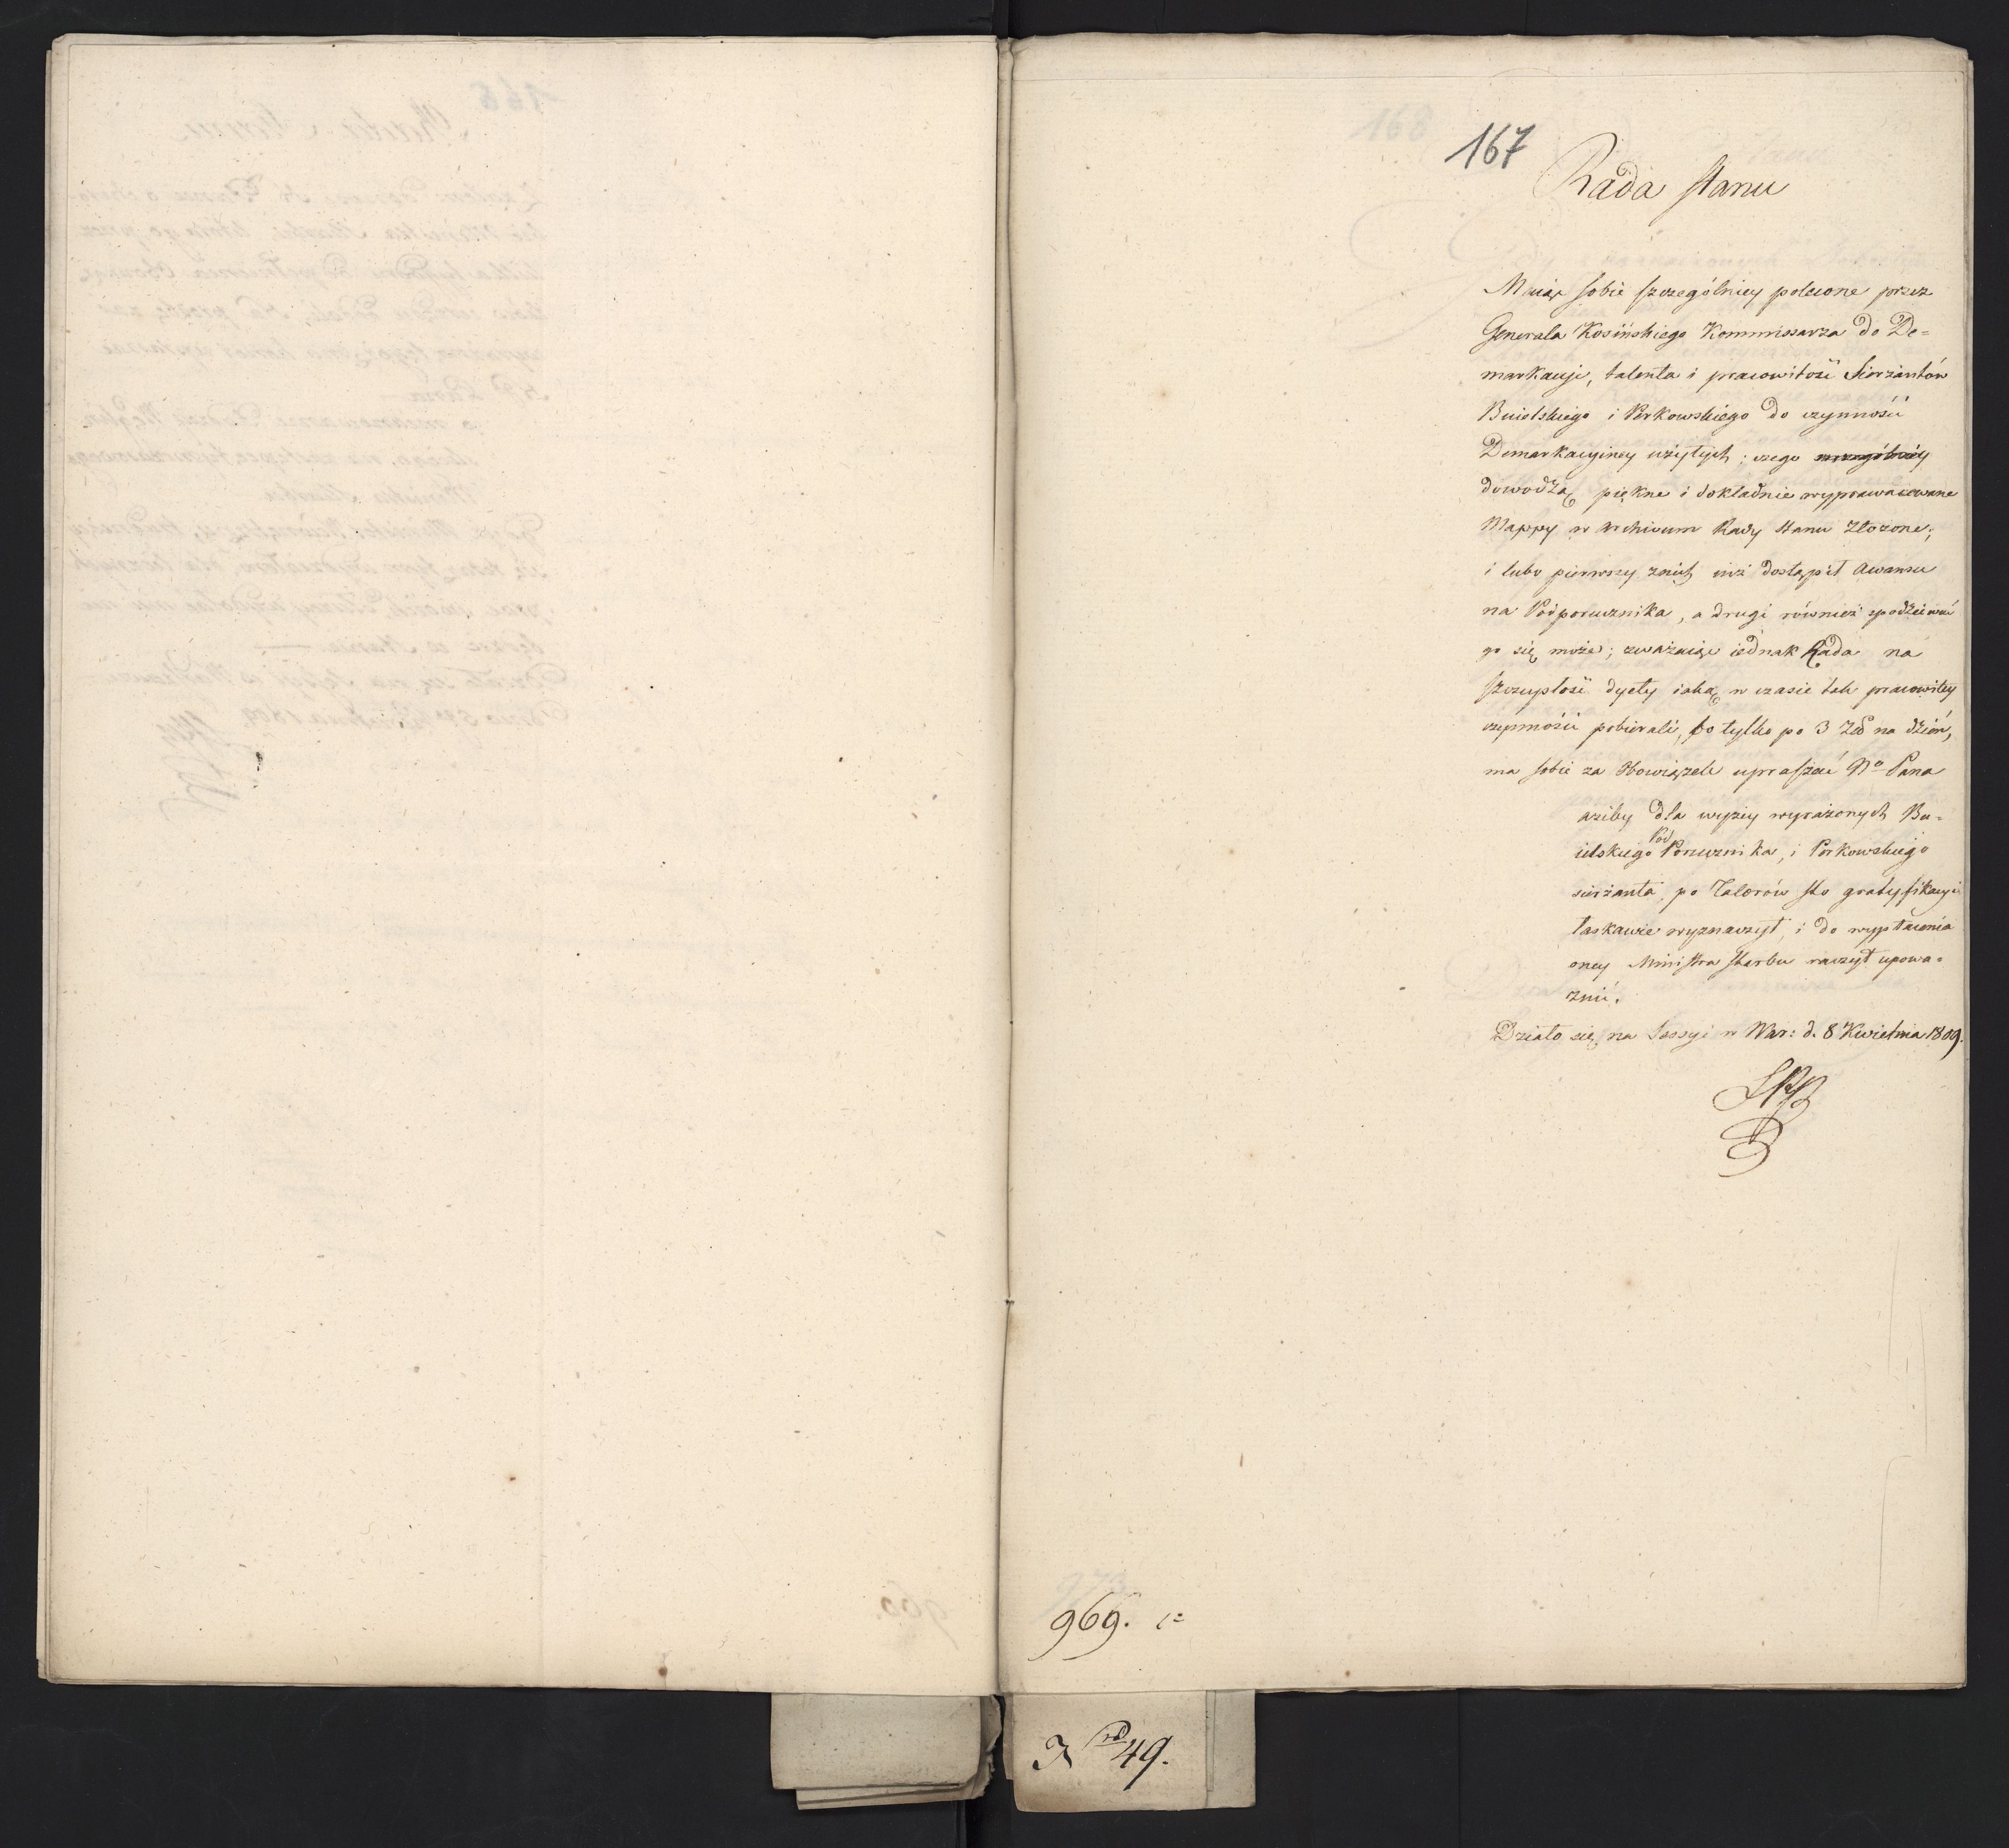 167
Rada Stanu
Maiąc sobie szczególniey polecone przez
Generała Kosińskiego Kommissarza do De=
markacyi, talenta i pracowitość Sierżantów
Buielskiego i Perkowskiego do czynności
Demarkacyiney użytych; czego szczególniey
dowodzą piękne i dokładnie wypracowane
Mappy w Archiwum Rady Stanu złożone;
i lubo pierwszy znich iuż dostąpił Awansu
na Podporucznika, a drugi również spodziewać
go się może; zważaiąc iednak Rada na
szczupłość dyety iaką w czasie tak pracowitey
czynności pobierali, bo tylko po 3 Złł na dzień,
ma sobie za Obowiązek upraszać No Pana
ażeby dla wyżey wyrażonych Bu=
ielskiego Pod Porucznika, i Perkowskiego
sierżanta, po Talerów sto gratyfikacyi
łaskawie wyznaczył, i do wypłacenia
oney Ministra Skarbu raczył upowa=
żnić.
Działo się na Sessyi w War: d. 8 Kwietnia 1809.
969.
49.